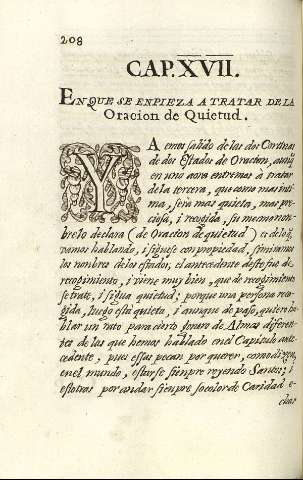 208
CAP. XVII.
EN QUE SE ENPIEZA A TRATAR DE LA
Oracion de Quietud.
YA emos salido de las dos Cortinas
de dos Estados de Oracion, aunq
en uno aora entremos à tratar
de la tercera, que como mas inti
ma, sera mas quieta, mas pre
ciosa, i recogida, su mesmo nom
bre lo declara (de Oracion de quietud)
vamos hablando, i siguese con propiedad, si miramos
los nombres de los estados, el antecedente deste fue de
recogimiento, i viene muy bien, que de recogimiento
se trate, i sigua quietud; porque una persona reco
gida, luego está quieta, i aunque de paso, quiero ha
blar un rato para cierto genero de Almas diferen
tes de las que hemos hablado en el Capitulo ante
cedente, pues essas pecan por querer, como dizen,
en el mundo, estarse sienpre reyendo Santos; i
estotras por andar sienpre socolor de Caridad e
char